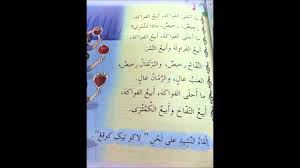 مَا أَحْلَى الفَوَاكِهَ، أَبِيعُ الفَوَاكِهَ،
أَبِيعُ الفَرَاوِلَةَ وَأَبِيعُ التَّمْرَ.
التُّفَّاحُ رَخِيصٌ، وَالبُرْتُقَالُ رَخِيصٌ،
العِنَبُ غَالٍ، وَالرُّمَّانُ غَالٍ.
مَا أَحْلَى الفَوَاكِهَ، أَبِيعُ الفَوَاكِهَ،
أَبِيعُ التُّفَّاحَ وَأَبِيعُ الكُمَّثْرَى.
إِلْقَاءُ النَّشِيدِ عَلَى لَحْنِ